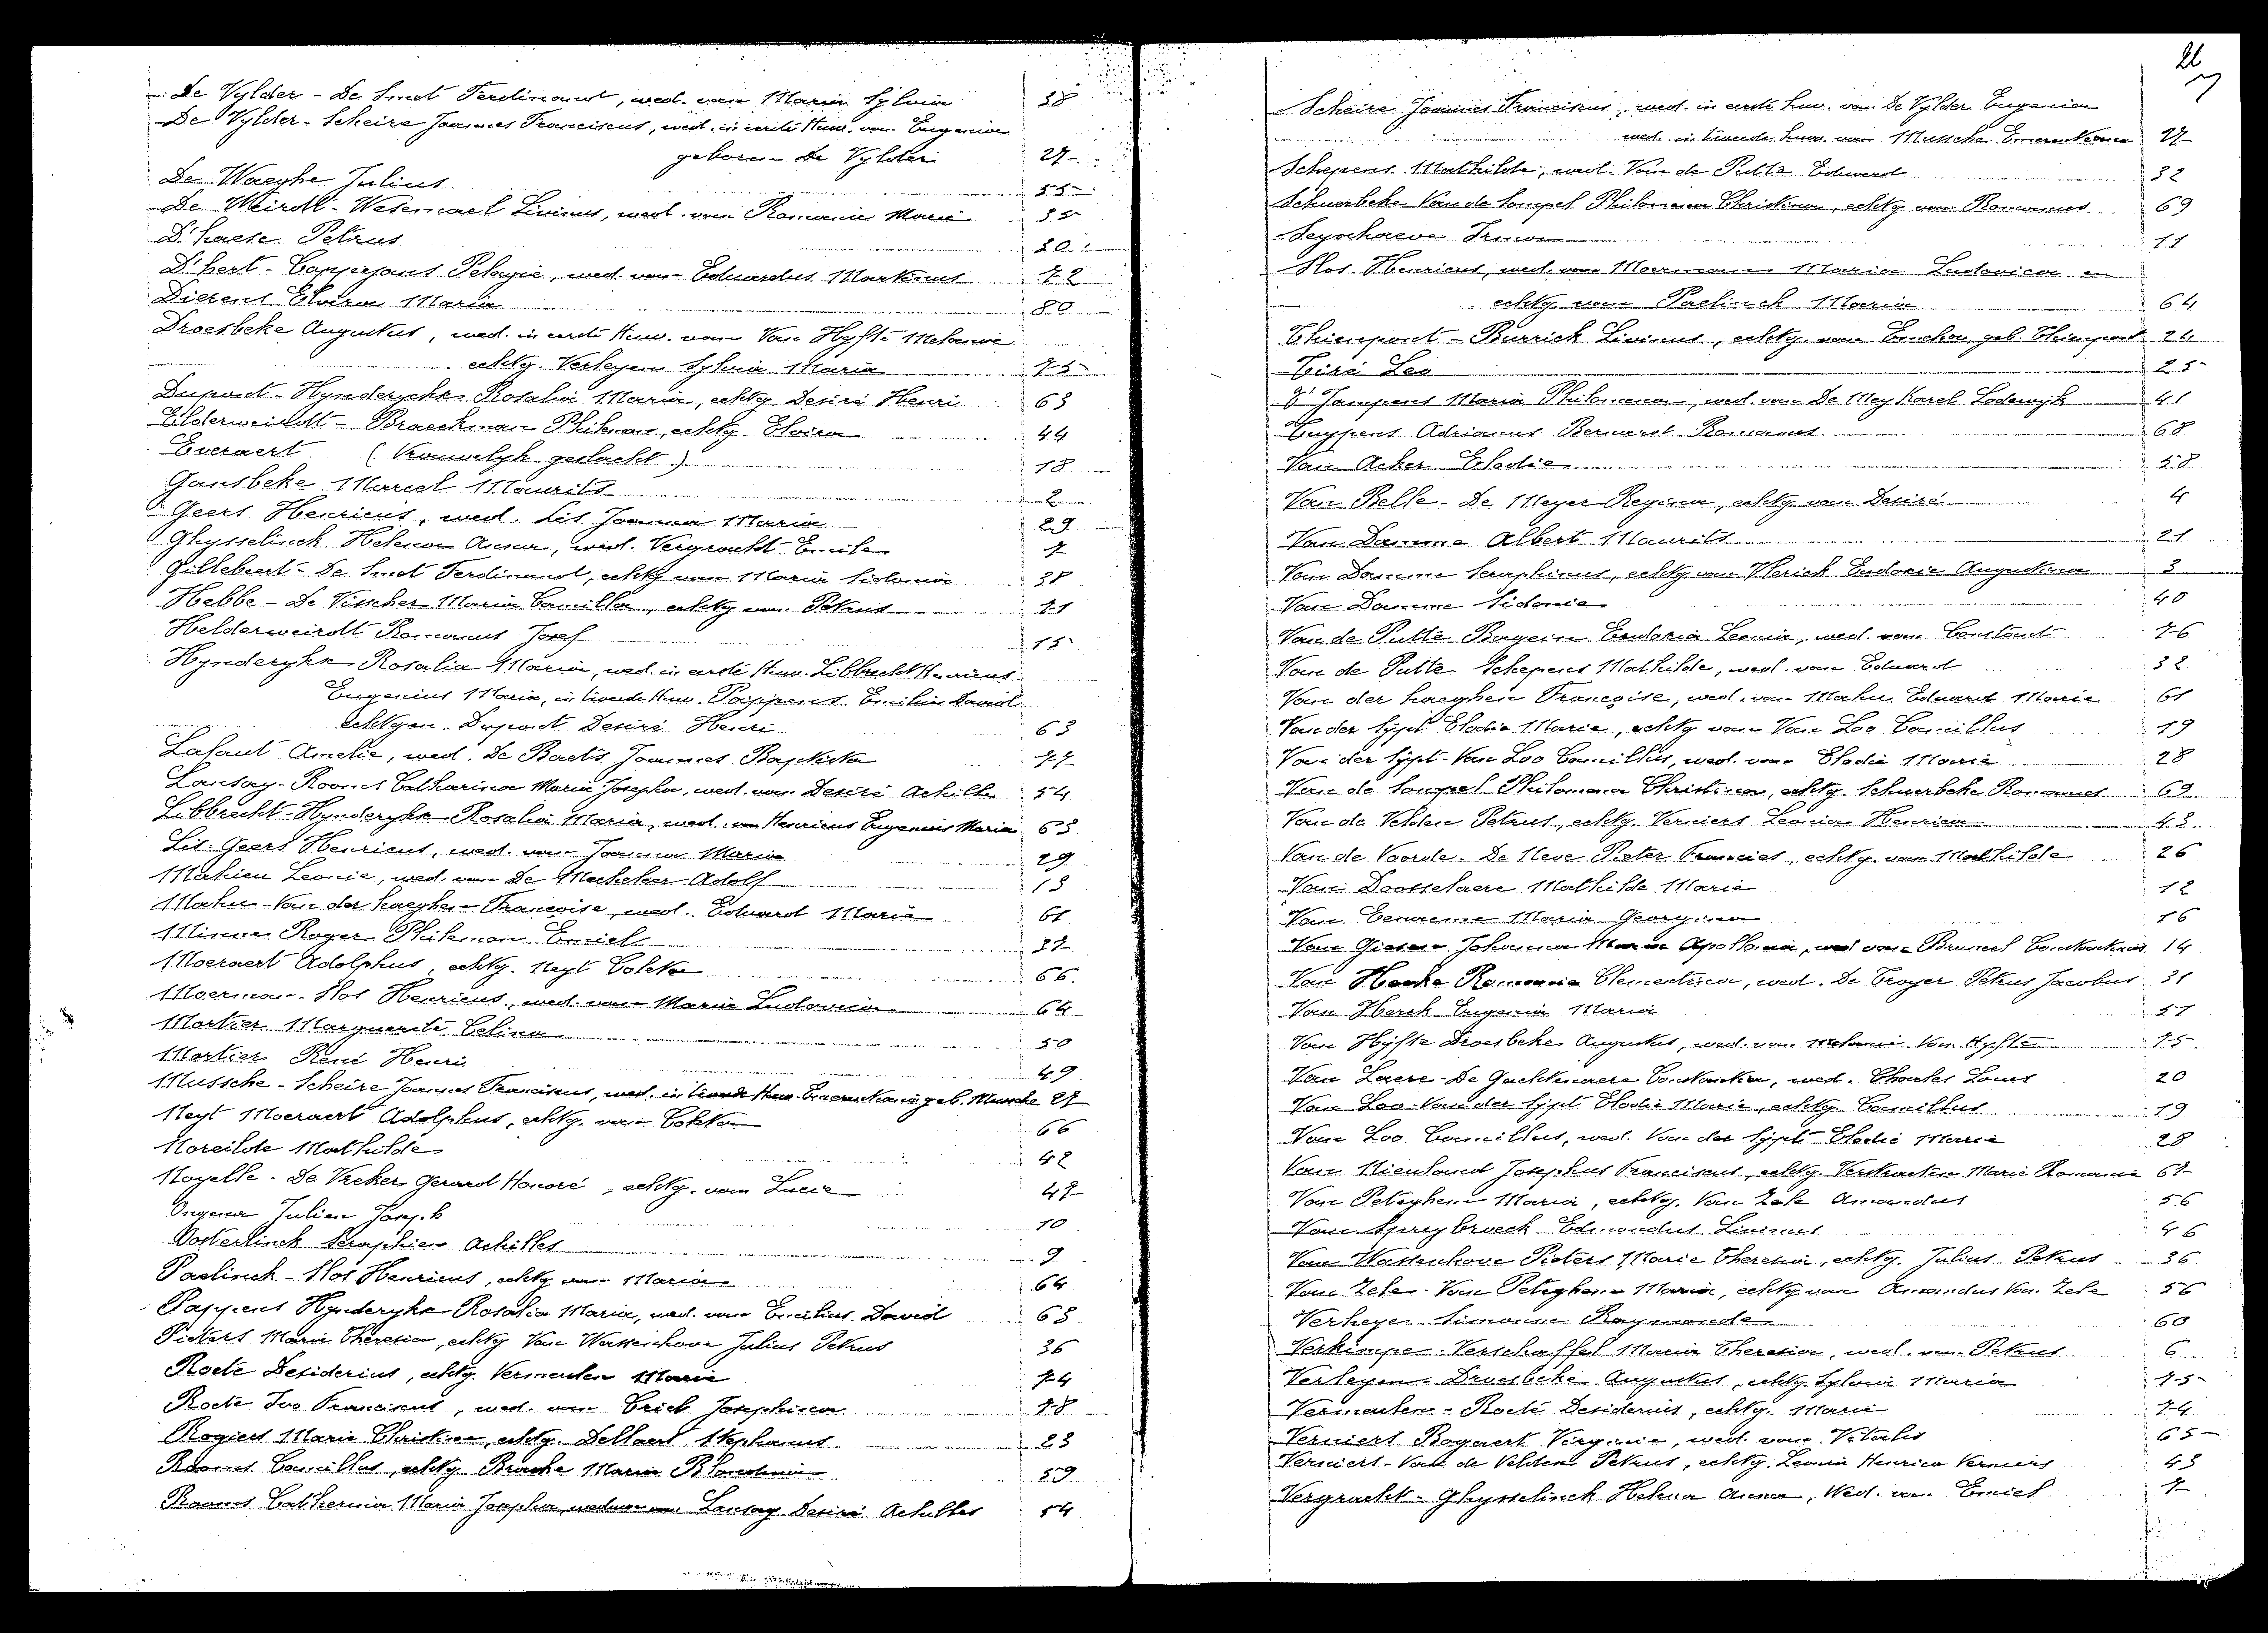 De Vylder - De Smet Ferdinand, wed. van Maria Sylvia 38
De Vylder - Scheire Joannes Franciscus, wed. in eerste Huw. van Eugenia
geboren De Vylder 27
De Waeghe Julius 55
De Weirdt - Wesemael Livinus, wed. van Romanie Marie 35
D'haese Petrus 20
D'hert - Coppejans Pelagie, wed. van Eduardus Martinus 72
Dierens Elvira Maria 80
Droesbeke Augustus, wed. in eerste Huw. van Van Hyfte Melanie
echtg. Verleyen Sylvia Maria 75
Dupont - Hynderykx Rosalia Maria, echtg. Desiré Henri 63
Elderweirdt - Braeckman Philemon, echtg. Elvira 44
Everaert (Vrouwelyk geslacht) 18
Gansbeke Marcel Maurits 2
Geers Henricus, wed. Lis Joanna Maria 29
Ghysselinck Helena Anna, wed. Vergracht Emile 7
Gillebert - De Smet Ferdinand, echtg van Maria Sidonia 38
Hebbe - De Visscher Maria Camilla, echtg van Petrus 71
Helderweirdt Romanus Josef 15
Hynderykx Rosalia Maria, wed. in eerste Huw. Libbrecht Henricus
Eugenius Maria, in tweede Huw. Pappens Emilius David
echtgen. Dupont Desiré Henri 63
Lafaut Amelie, wed. De Baets Joannes Baptista 77
Lansay - Rooms Catharina Maria Josepha, wed. van Desiré Achille 54
Libbrecht - Hynderykx Rosalia Maria, wed. van Henricus Eugenius Maria 63
Lis - Geers Henricus, wed. van Joanna Maria 29
Mahieu Leonie, wed. van De Adolf 13
Mahu - Van der haeghen Françoise, wed. Eduard Marie 61
Minne Roger Philemon Emiel 37
Moeraert Adolphus, echtg. Neyt Coleta 66
Moerman - Slos Henricus, wed. van Maria Ludovica 64
Mortier Marguerite Celina 50
Mortier René Henri 49
Mussche - Scheire Joannes Franciscus, wed. in tweede Huw. Emerentiana geb. Mussche 27
Neyt Moeraert Adolphus, echtg. van Coleta 66
Noreilde Mathilde 42
Noyelle - De Vreker Gerard Honoré, echtg. van Lucie 47
Ongena Julien Joseph 10
Oosterlinck Seraphien Achilles 9
Paelinck - Slos Henricus, echtg van Maria 64
Pappens Hynderykx Rosalia Maria, wed. van Emilius David 63
Pieters Maria Theresia, echtg Van Wassenhove Julius Petrus 36
Roete Desiderius, echtg. Vermeulen Marie 74
Roete Ivo Franciscus, wed. van Criel Josephina 78
Rogiers Marie Christine, echtg. Dellaert Stephanus 23
Rooms Camillus, echtg. Maria Blondina 59
Rooms Catherina Maria Josepha, weduwe van Lansay Desiré Achilles 54
26
Scheire Joannes Franciscus, wed. in eerste huw. van De Vylder Eugenia
wed. in tweede huw. van Mussche Emerentiana 27
Schepens Mathilde, wed. Van de Putte Eduard 32
Schuerbeke Van de Sompel Philomena Christina, echtg van Romanus 69
Seynhaeve Irma 11
Slos Henricus, wed. van Moerman Maria Ludovica en
echtg. van Paelinck Maria 64
Thienpont - Burrick Livinus, echtg. van geb. Thienpont 24
Tiré Leo 25
T'Jampens Maria Philomena, wed. van De Mey Karel Lodewyk 41
Adrianus Bernard Romanus 68
Van Acker Elodie 58
Van Belle - De Meyer Regina, echtg. van Desiré 4
Van Damme Albert Maurits 21
Van Damme Seraphinus, echtg. van Eudoxie Augustina 3
Van Damme Sidonie 40
Van de Putte Bayein Leonia, wed. van Constant 76
Van de Putte Schepens Mathilde, wed. van Eduard 32
Van der haeghen Françoise, wed. van Mahu Eduard Marie 61
Van der Sypt Elodie Marie, echtg van Van Loo Camillus 19
Van der Sypt - Van Loo Camillus, wed. van Elodie Marie 28
Van de Sompel Philomena Christina, echtg. Schuerbeke Romanus 69
Van de Velden Petrus, echtg. Verniers Leonia Henrica 43
Van de Voorde - De Neve Pieter Francies, echtg. van Mathilde 26
Van Dooselaere Mathilde Marie 12
Van Eenaeme Maria Georgina 16
Van Giesen Johanna Maria Apollonia, wed van Bruneel Constantinus 14
Van Hecke Romania Clementina, wed. De Troyer Petrus Jacobus 31
Van Herck Eugenia Maria 51
Van Hyfte Droesbeke Augustus, wed. van Melanie Van Hyfte 75
Van Laere - De Gucktenaere Constantia, wed. Charles Louis 20
Van Loo - Van der Sypt Elodie Marie, echtg. Camillus 19
Van Loo Camillus, wed. Van der Sypt Elodie Marie 28
Van Nieuland Josephus Franciscus, echtg. Verstraeten Marie Romanie 67
Van Peteghem Maria, echtg. Van Zele Amandus 56
Van Spreybroeck Edmondus Livinus 46
Van Wassenhove Pieters Marie Theresia, echtg. Julius Petrus 36
Van Zele - Van Peteghem Maria, echtg van Amandus Van Zele 56
Verheyen Simonne Raymonde 60
Verkimpe - Verschaffel Maria Theresia, wed. van Petrus 6
Verleyen - Droesbeke Augustus, echtg. Sylvia Maria 75
Vermeulen - Roete Desiderius, echtg. Marie 74
Verniers Bogaert Virginie, wed. van Vitalis 65
Verniers - Van de Velden Petrus, echtg. Leonia Henrica Verniers 43
Vergracht - Ghysselinck Helena Anna, Wed. van Emiel 7